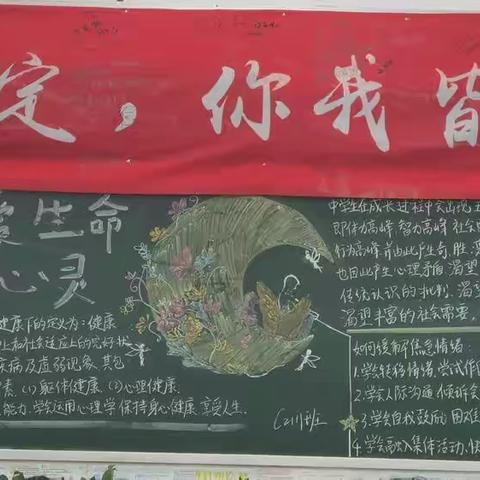 定，你我皆
爱生命
心灵
健康下的定义为：健康
上和社会适应上的完好状
疾病及虚弱现象，其包
素：(1)躯体健康 (2)心理健康
能力，学会运用心理学保持身心健康，享受人生。
C2111班
中学生在成长过程中会出现五
即体力高峰，智力高峰，社会
行为高峰，并由此产生奇、胜、
也因此产生心理矛盾，渴望
传统认识的批判，渴望
渴望丰富的社会需要。
如何缓解焦虑情绪：
1.学会转移情绪，尝试作
2.学会人际沟通，倾诉会
3.学会自我鼓励，困难
4.学会融入集体活动，快